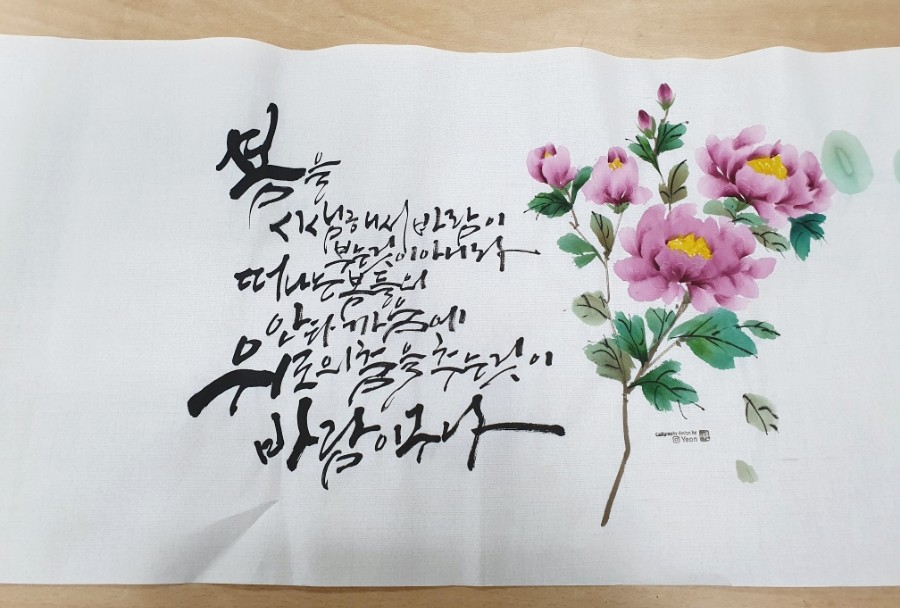 봄을
시샘해서 바람이
부는것이 아니라
떠나는 봄들의
안타까움에
위로의 춤을 추는것이
바람이구나
Yeon